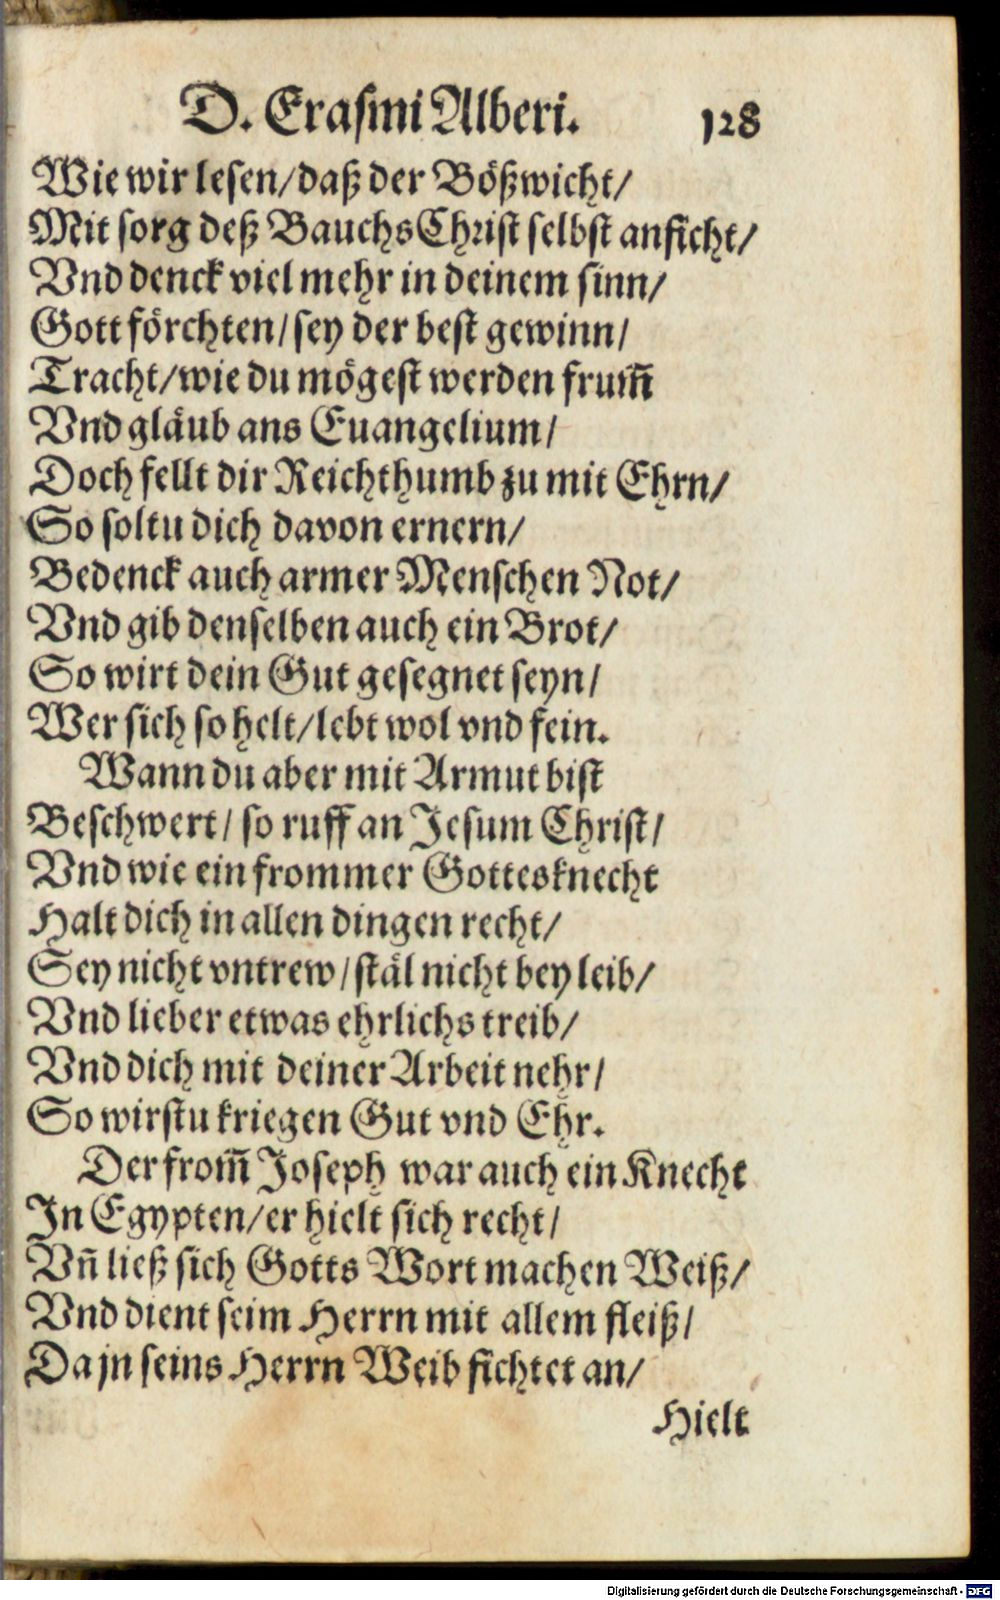 D. Erasmi Alberi. 128
Wie wir lesen/daß der Bößwicht/
Mit sorg deß Bauchs Christ selbst anficht/
Vnd denck viel mehr in deinem sinn/
Gott förchten/sey der best gewinn/
Tracht/wie du mögest werden frum̃
Vnd gläub ans Euangelium/
Doch fellt dir Reichthumb zu mit Ehrn/
So soltu dich davon ernern/
Bedenck auch armer Menschen Not/
Vnd gib denselben auch ein Brot/
So wirt dein Gut gesegnet seyn/
Wer sich so helt/lebt wol vnd fein.
Wann du aber mit Armut bist
Beschwert/ so ruff an Jesum Christ/
Vnd wie ein frommer Gottesknecht
Halt dich in allen dingen recht/
Sey nicht vntrew/stäl nicht bey leib/
Vnd lieber etwas ehrlichs treib/
Vnd dich mit deiner Arbeit nehr/
So wirstu kriegen Gut vnd Ehr.
Der from̃ Joseph war auch ein Knecht
In Egypten/er hielt sich recht/
Vñ ließ sich Gotts Wort machen Weiß/
Vnd dient seim Herrn mit allem fleiß/
Da jn seins Herrn Weib fichtet an/
Hielt
Digitalisierung gefördert durch die Deutsche Forschungsgemeinschaft - DFG